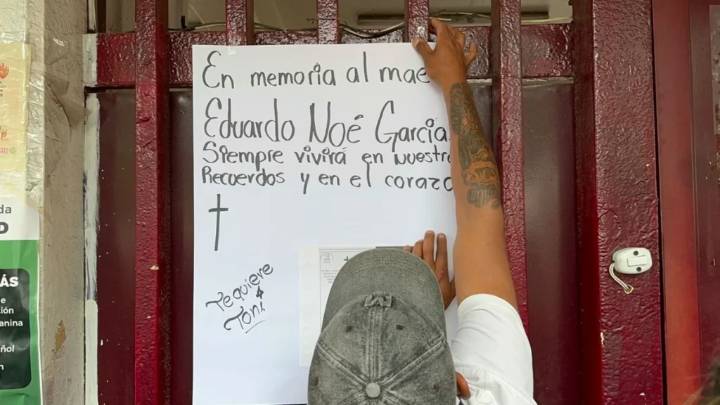 En memoria al mae
Eduardo Noé Garcia
Siempre vivirá en nuestr
Recuerdos y en el corazo
Te quiere
Toni
da
D
ÁS
e
ión
anina
ñol
n